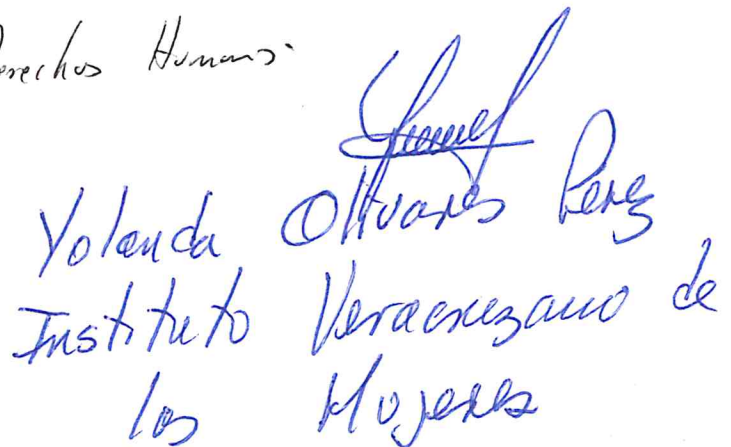 Derechos Humanos
Yolanda Olivares Perez
Instituto Veracruzano de
las Mujeres